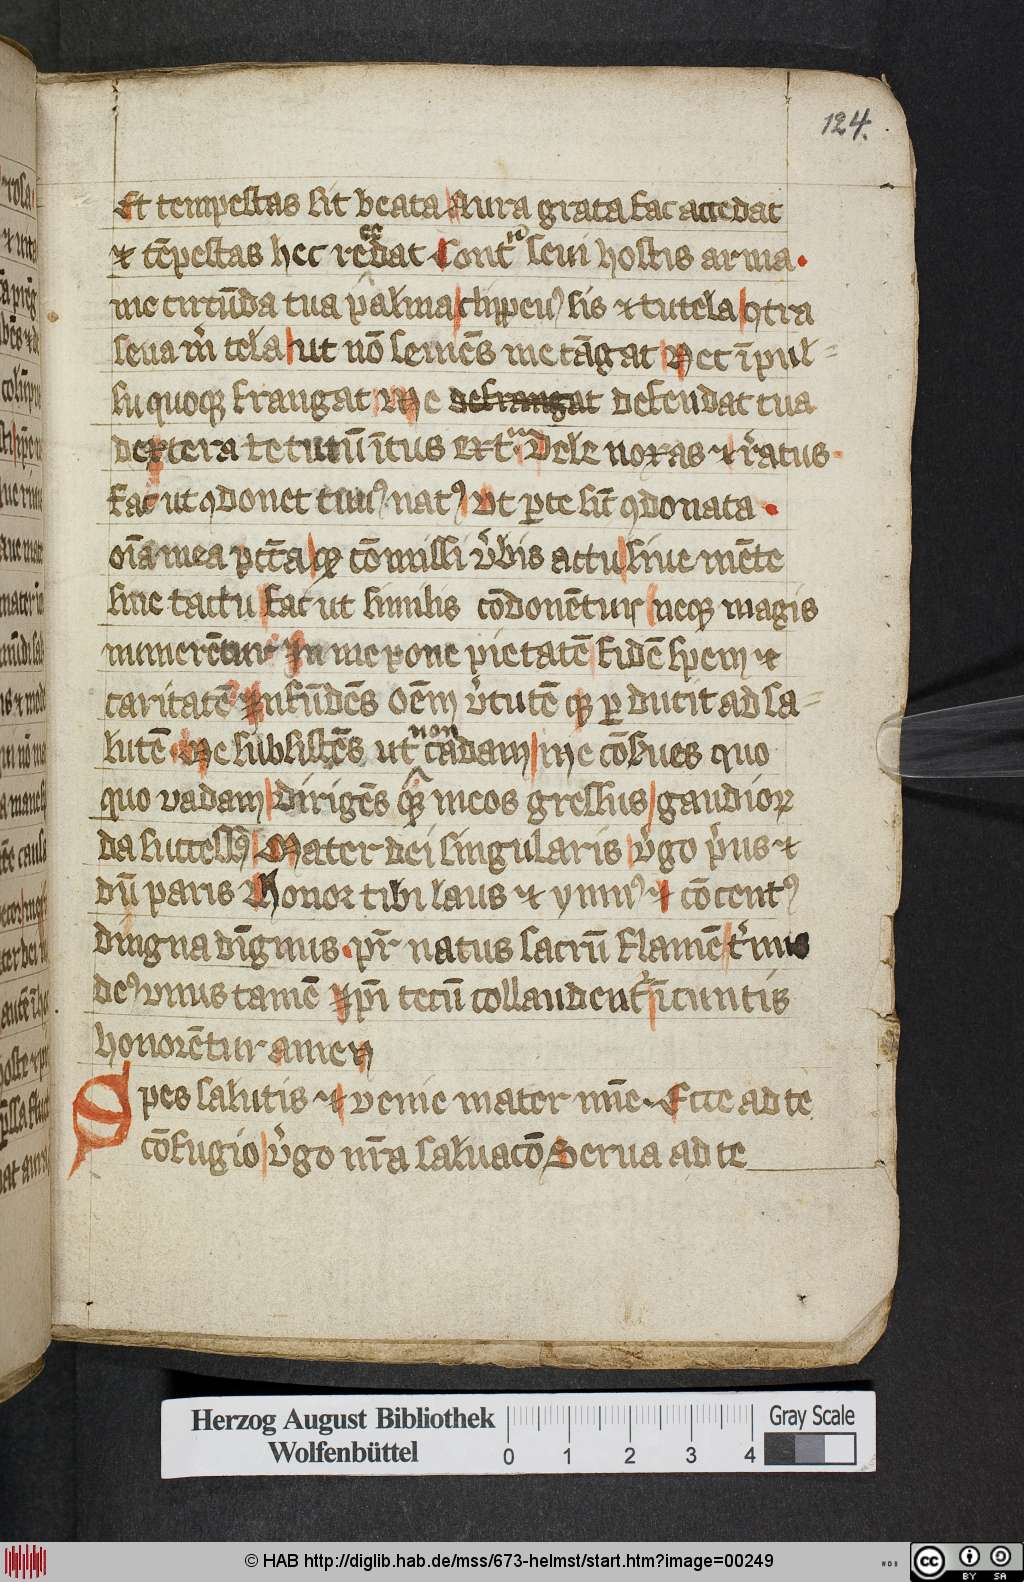 124.
Et tempestas sit beata Aura grata fac accedat
⁊ tēpestas hec redat Cont seui hostis arma
me circūda tua palma clippeꝰ sis ⁊ tutela
seua tela ut nō semēs me tāgat Nec īpul=
su quoqꝫ frangat Me defrangat defendat tua
dextera te tutū ītus Dele noxas ⁊ ratus
fac ut ꝯdonet tuuꝰ natꝰ Vt ꝑte sīt ꝯdonata
oīa mea pctā cōmissi vͥbis actu siue mēte
siue tactu fac ut similis cōdonētur neqꝫ magis
numerētur In me pone pietatē fidē spem ⁊
caritatē Infūdēs oēm vͥtutē ꝑducit ad sa=
lutē Me subsistēs ut non cadam Me cōfoues quo
quo vadam dirigēs meos gressus gaudior
da successꝰ Mater dei singularis vͥgo pͥus ⁊
dū paris Honor tibi laus ⁊ ymnꝰ ⁊ cōcentꝰ
dingna dīgmus pr̄ natus sacrū flamē tͥnus
deꝰ vnus tamē tecū collaudent ī cuntis
honorētur amen
Spes salutis ⁊ venie mater mīe Ecce ad te
cōfugio vͥgo nr̄a saluacō Serua ad te
Herzog August Bibliothek
Wolfenbüttel
0 1 2 3 4
Gray Scale
© HAB http://diglib.hab.de/mss/673-helmst/start.htm?image=00249
cc BY SA